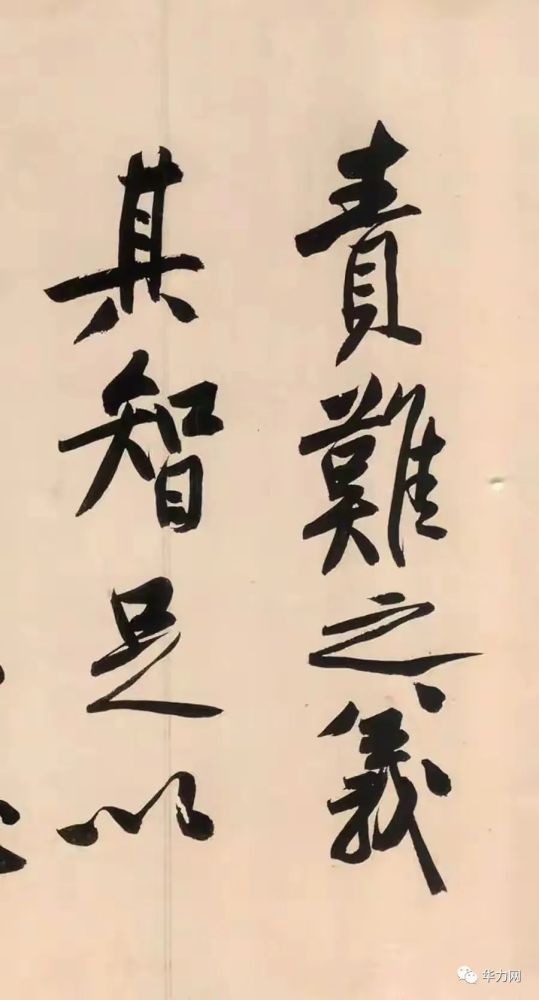 責難之義
其智足以
华力网